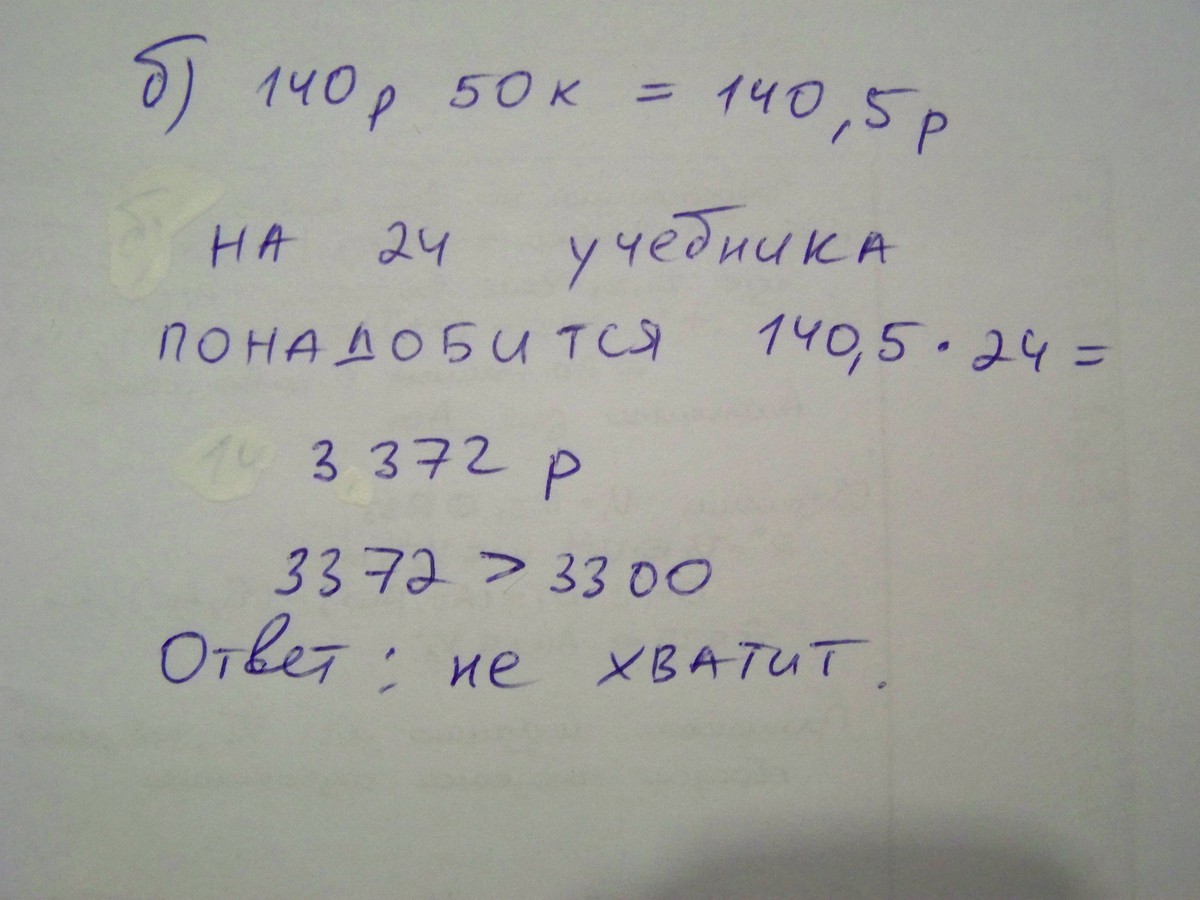 б) 140р 50к = 140,5р
на 24 учебника
понадобится 140,5 · 24 =
3 372 р
3372 > 3300
Ответ: не хватит.